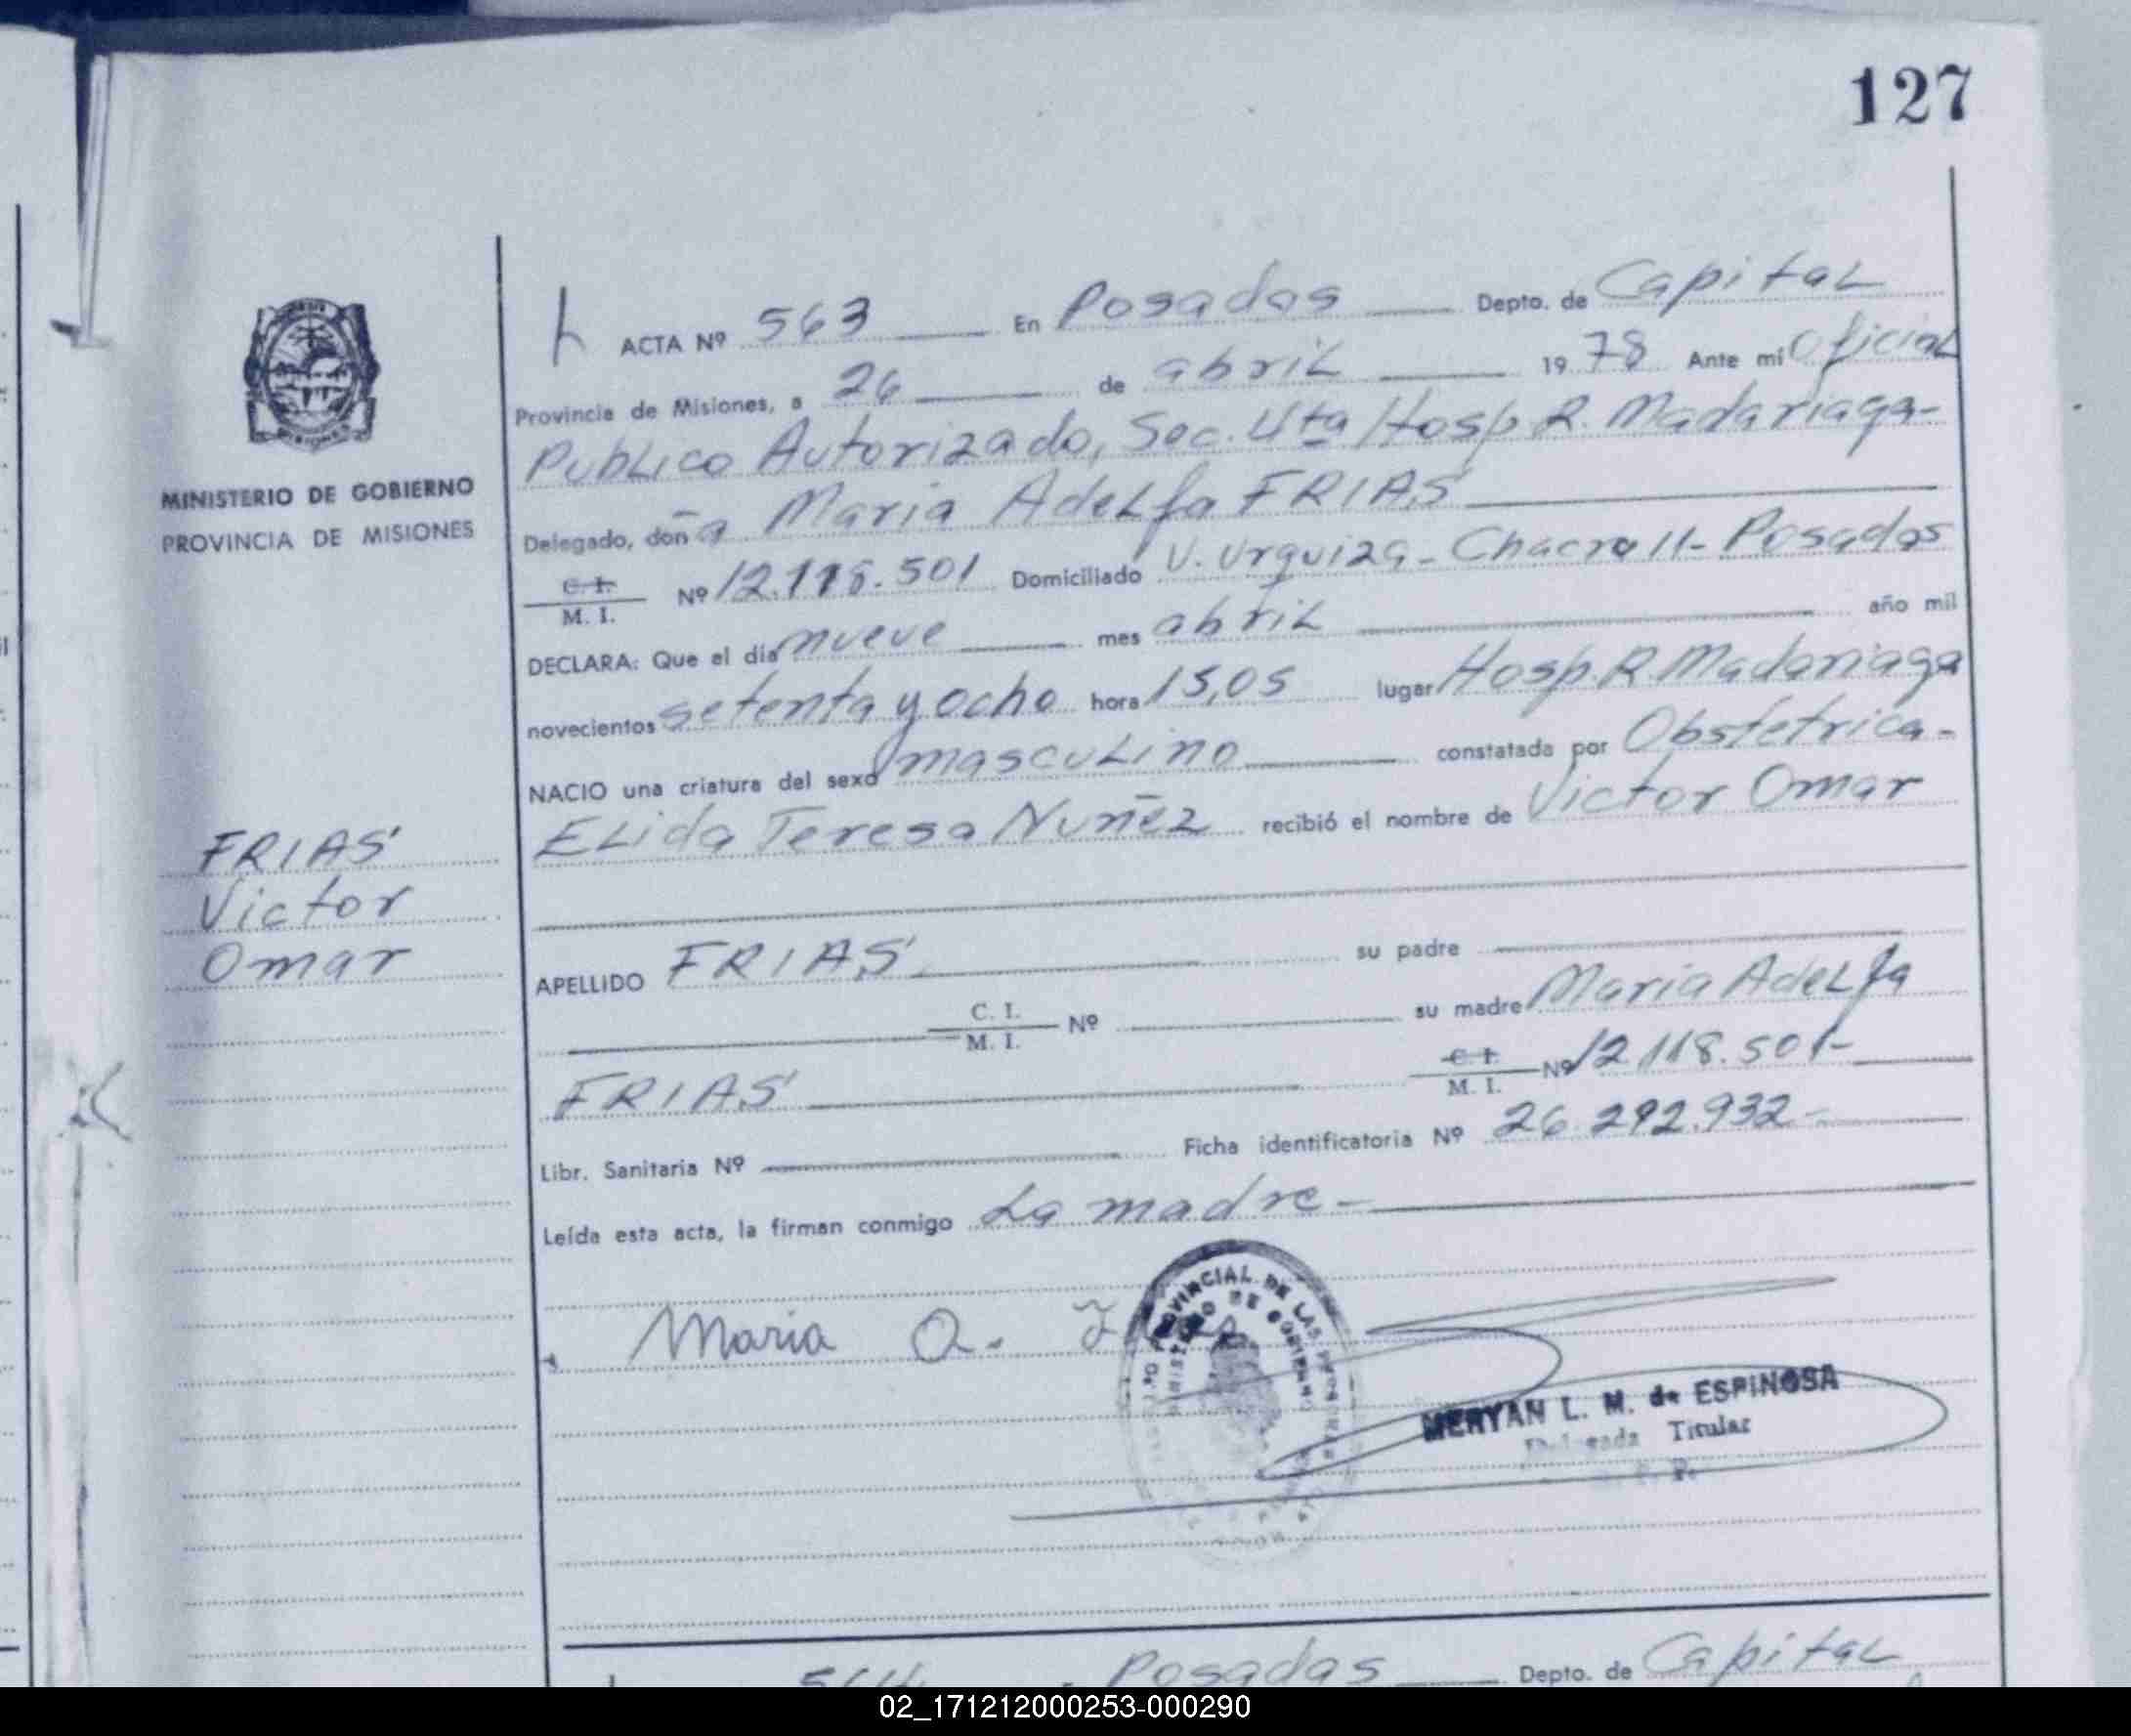 127
MINISTERIO DE GOBIERNO
PROVINCIA DE MISIONES
FRIAS
Victor
Omar
ACTA Nº 563 En Posadas Depto. de Capital
Provincia de Misiones, a 26 de abril 1978 Ante mi Oficial
Publico Autorizado, Sec. 4ta Hosp R. Madariaga-
Delegado, doña Maria Adelfa FRIAS
C. I.
M. I. Nº 12.118.501 Domiciliado V. Urquiza - Chacra 11- Posadas
DECLARA: Que el día nueve mes abril año mil
novecientos setenta y ocho hora 15,05 lugar Hosp. R Madariaga
NACIO una criatura del sexo masculino constatada por Obstetrica-
Elida Teresa Nuñez recibió el nombre de Victor Omar
APELLIDO FRIAS su padre
C. I.
M. I. Nº su madre Maria Adelfa
FRIAS C. I.
M. I. Nº 12.118.501-
Libr. Sanitaria Nº Ficha identificatoria Nº 26.292.932-
Leída esta acta, la firman conmigo La madre-
Maria A.
PROVINCIAL DE LAS PERSONAS
MINISTERIO DE GOBIERNO
MERYAN L. M. de ESPINOSA
Delegada Titular
564 Posadas Depto. de Capital
02_171212000253-000290